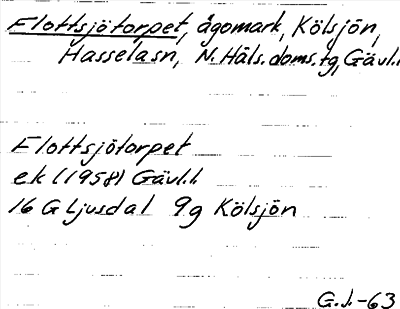 Flottsjötorpet, ägomark, Kölsjön,
Hasselasn, N. Häls. doms.tg, Gävl.l.
Flottsjötorpet
ek (1958) Gävl.l.
16 G Ljusdal 9g Kölsjön
G.J.-63